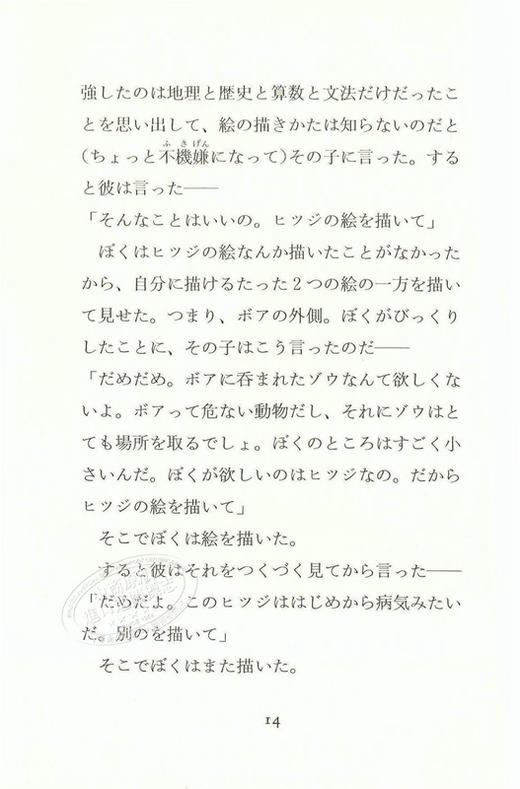 強したのは地理と歴史と算数と文法だけだったこ
とを思い出して、絵の描きかたは知らないのだと
(ちょっと不機嫌になって)その子に言った。する
と彼は言った——
「そんなことはいいの。ヒツジの絵を描いて」
ぼくはヒツジの絵なんか描いたことがなかった
から、自分に描けるたった2つの絵の一方を描い
て見せた。つまり、ボアの外側。ぼくがびっくり
したことに、その子はこう言ったのだ——
「だめだめ。ボアに呑まれたゾウなんて欲しくな
いよ。ボアって危ない動物だし、それにゾウはと
ても場所を取るでしょ。ぼくのところはすごく小
さいんだ。ぼくが欲しいのはヒツジなの。だから
ヒツジの絵を描いて」
そこでぼくは絵を描いた。
すると彼はそれをつくづく見てから言った——
「だめだよ。このヒツジははじめから病気みたい
だ。別のを描いて」
そこでぼくはまた描いた。
14